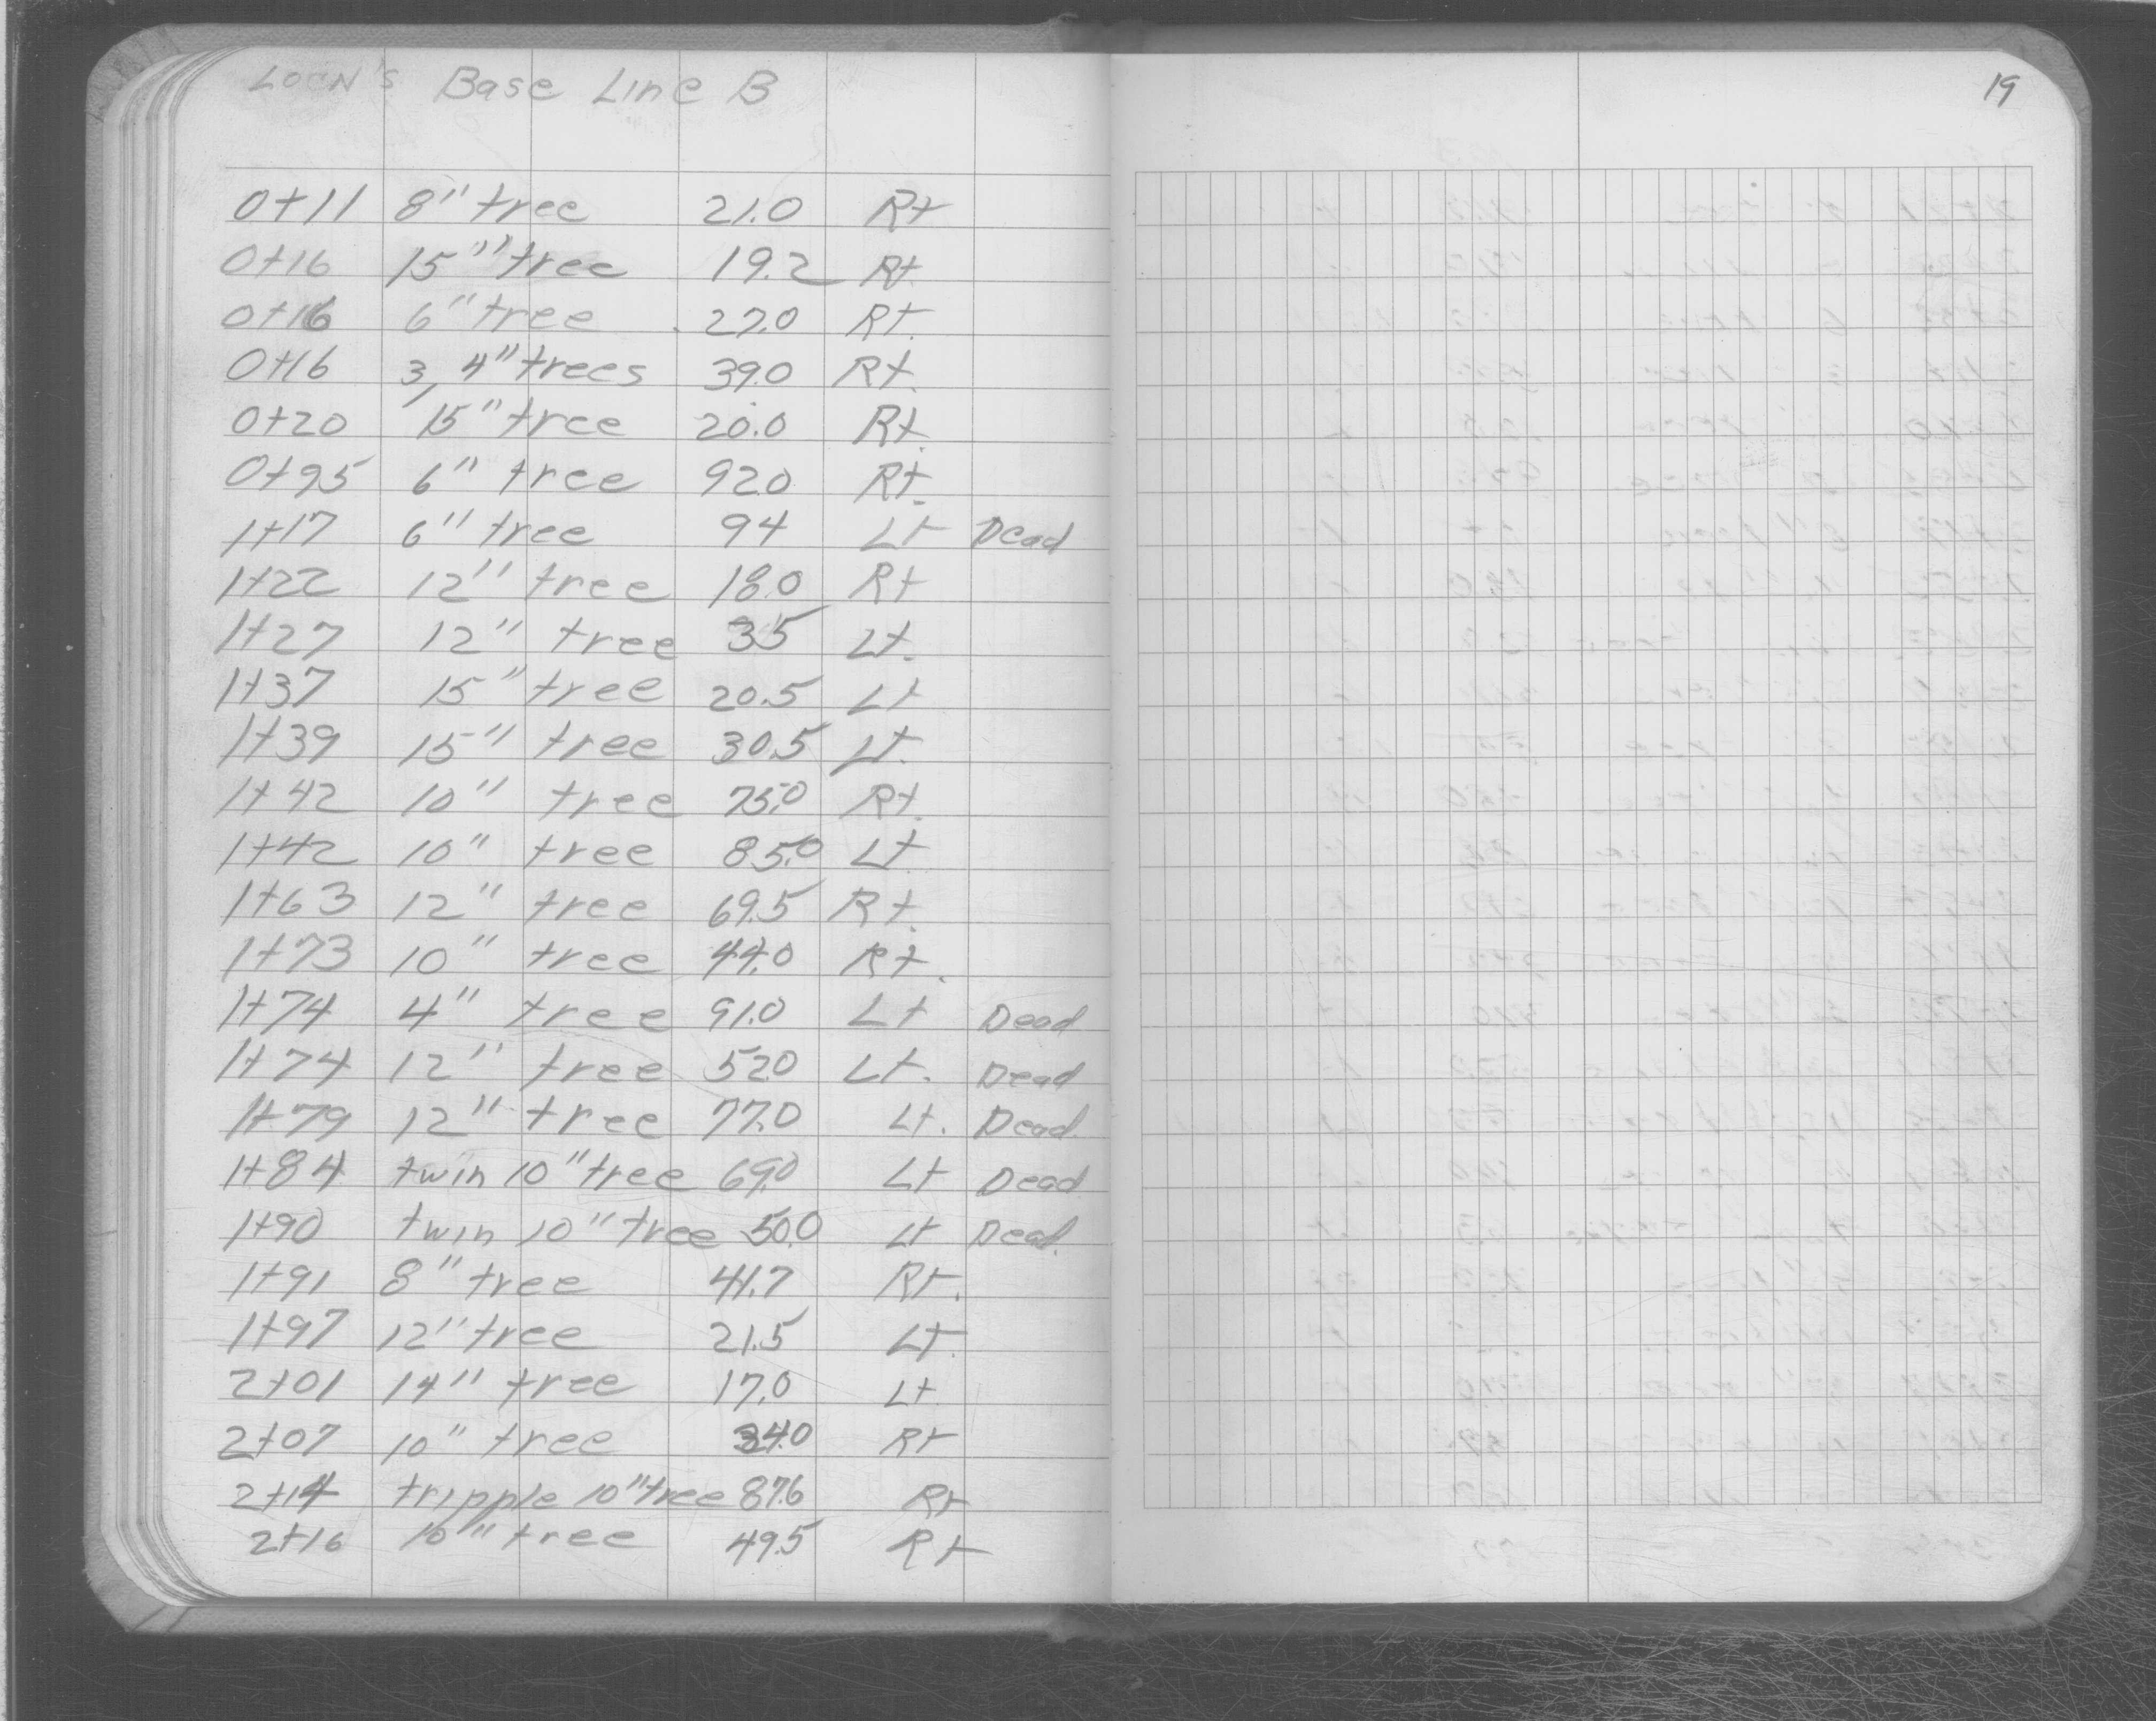 LOCN'S Base Line B
19
0+11 8" tree 21.0 Rt
0+16 15" tree 19.2 Rt
0+16 6" tree 27.0 Rt.
0+16 3, 4" trees 39.0 Rt.
0+20 15" tree 20.0 Rt.
0+95 6" tree 92.0 Rt.
1+17 6" tree 94 Lt Dead
1+22 12" tree 18.0 Rt
1+27 12" tree 35 Lt.
1+37 15" tree 20.5 Lt
1+39 15" tree 30.5 Lt.
1+42 10" tree 75.0 Rt.
1+42 10" tree 85.0 Lt
1+63 12" tree 69.5 Rt.
1+73 10" tree 44.0 Rt.
1+74 4" tree 91.0 Lt Dead
1+74 12" tree 52.0 Lt. Dead
1+79 12" tree 77.0 Lt. Dead.
1+84 twin 10" tree 69.0 Lt Dead
1+90 twin 10" tree 50.0 Lt Dead.
1+91 8" tree 41.7 Rt.
1+97 12" tree 21.5 Lt.
2+01 14" tree 17.0 Lt
2+07 10" tree 34.0 Rt
2+14 tripple 10" tree 87.6 Rt
2+16 10" tree 49.5 Rt